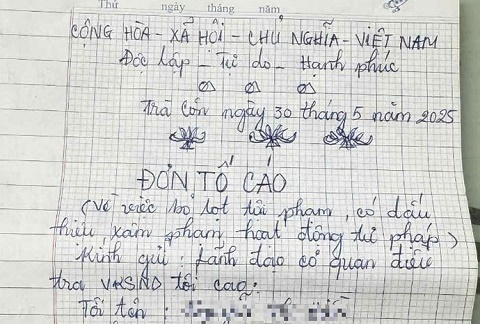 Thứ ngày tháng năm
CỘNG HÒA - XÃ HỘI - CHỦ NGHĨA - VIỆT NAM
Độc lập - Tự do - Hạnh phúc
Trà Côn ngày 30 tháng 5 năm 2025
ĐƠN TỐ CÁO
(Về việc bỏ lọt tội phạm, có dấu
hiệu xâm phạm hoạt động tư pháp)
Kính gửi: Lãnh đạo cơ quan điều
tra VKSND tối cao:
Tôi tên :